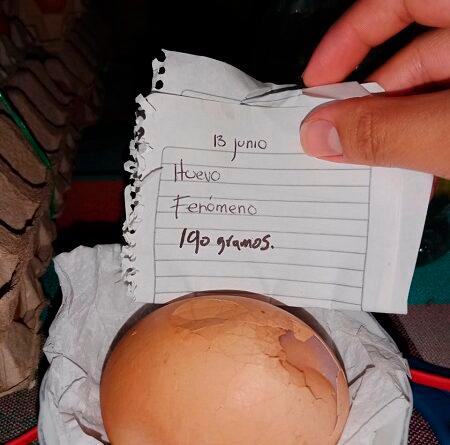 13 junio
Huevo
Fenómeno
190 gramos.